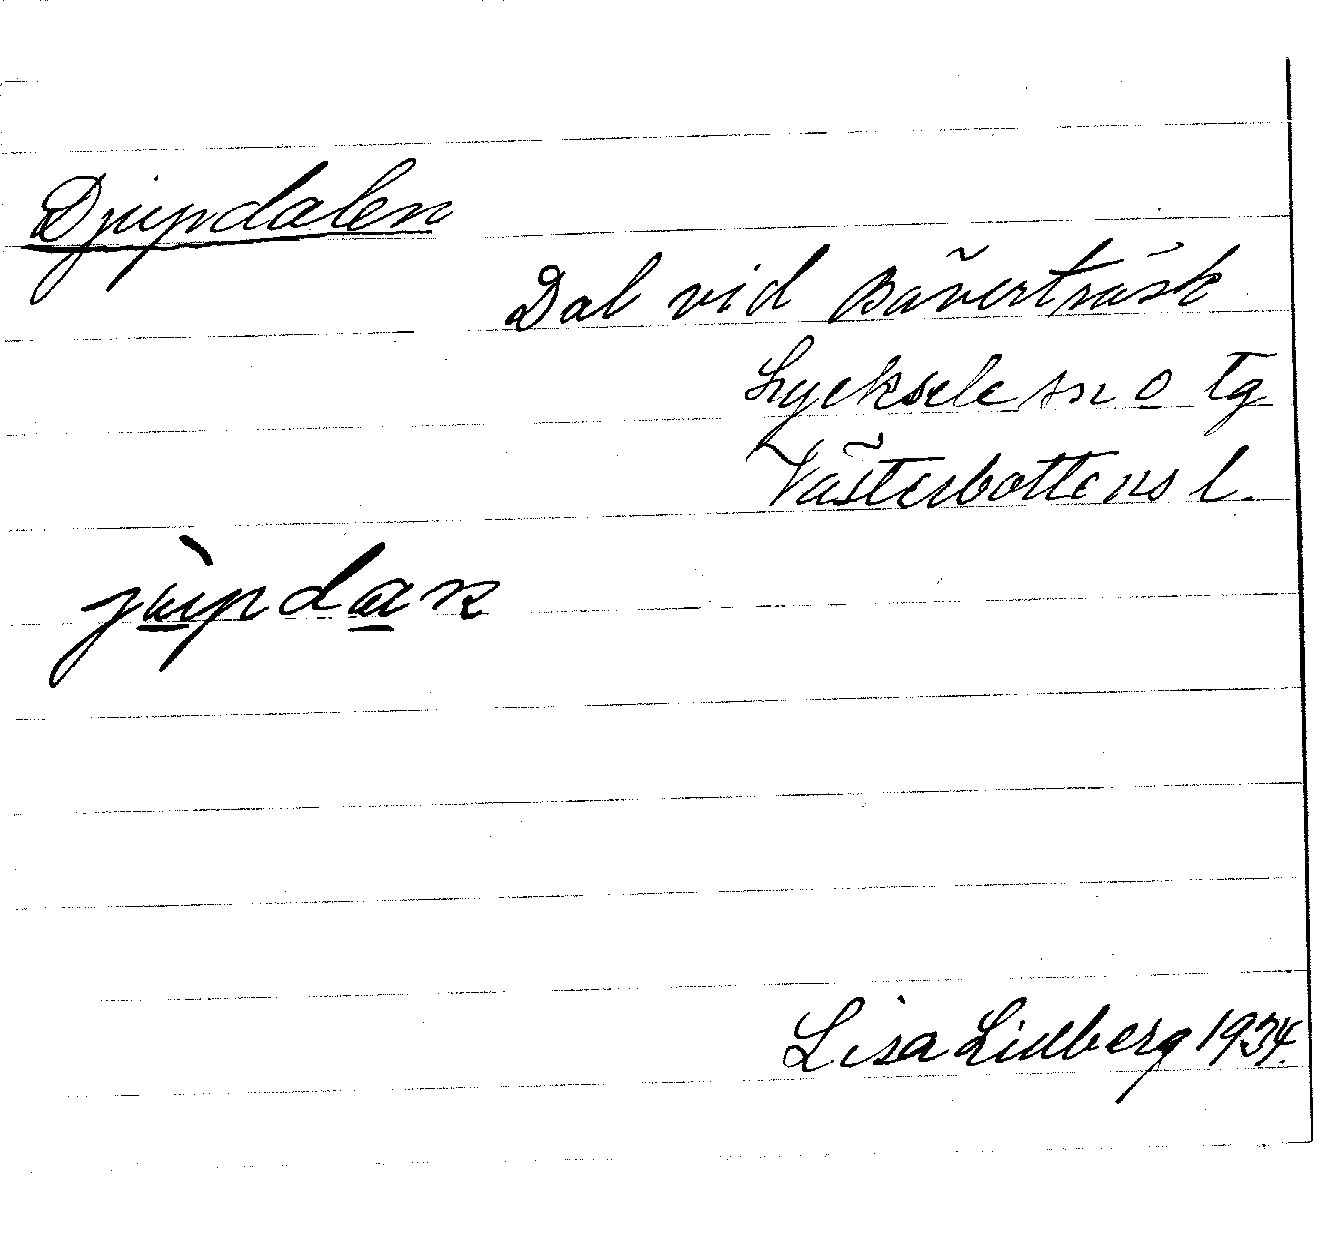 Djupdalen
Dal vid Bäverträsk
Lycksele sn o tg
Västerbottens l.
jùpdan
Lisa Lidberg 1934.